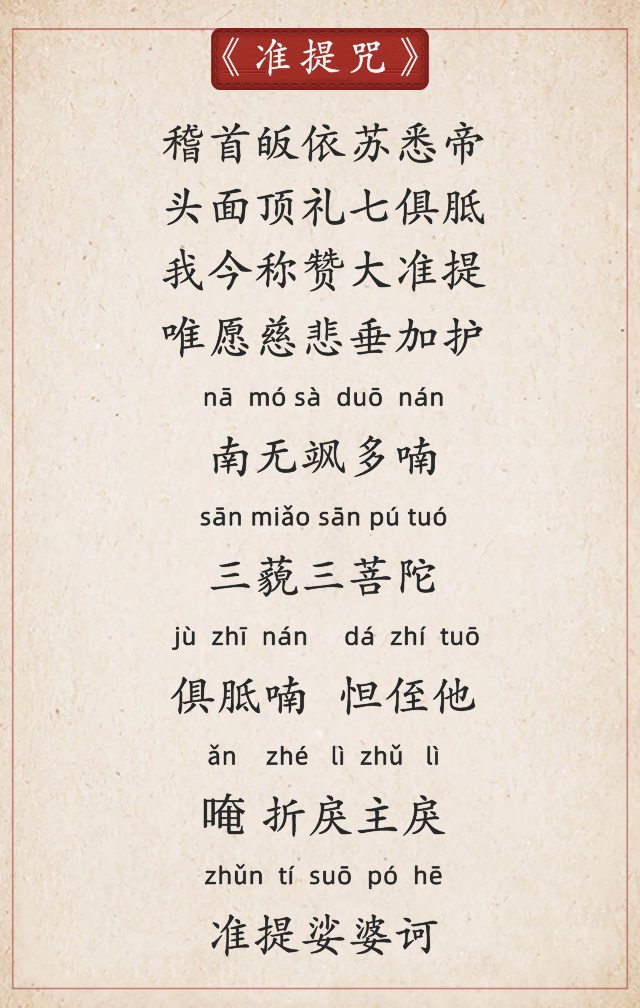 《准提咒》
稽首皈依苏悉帝
头面顶礼七俱胝
我今称赞大准提
唯愿慈悲垂加护
nā mó sà duō nán
南无飒多喃
sān miǎo sān pú tuó
三藐三菩陀
jù zhī nán dá zhí tuō
俱胝喃 怛侄他
ǎn zhé lì zhǔ lì
唵 折戾主戾
zhǔn tí suō pó hē
准提娑婆诃